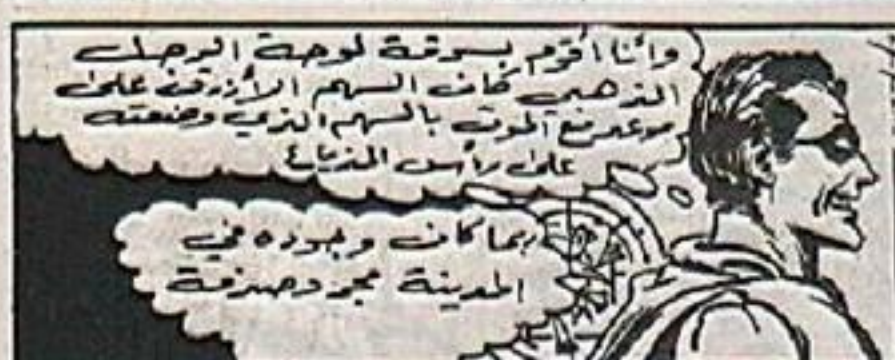 وأنا أقوم بسرقة لوحة الرجل
الذهبي كان السهم الأزرق على
موعد مع الموت بالسهم الذي وضعته
على رأس المذياع
ربما كان وجوده في
المدينة مجرد صدفة